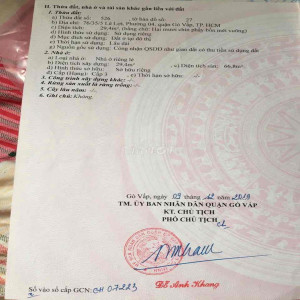 II. Thửa đất, nhà ở và tài sản khác gắn liền với đất
1. Thửa đất:
a) Thửa đất số: 526 , tờ bản đồ số: 27
b) Địa chỉ: 76/35/3 Lê Lợi, Phường 04, quận Gò Vấp, TP. HCM
c) Diện tích: 29,4m², (bằng chữ: Hai mươi chín phẩy bốn mét vuông)
d) Hình thức sử dụng: Sử dụng riêng
đ) Mục đích sử dụng: Đất ở tại đô thị
e) Thời hạn sử dụng: Lâu dài
g) Nguồn gốc sử dụng: Công nhận QSDĐ như giao đất có thu tiền sử dụng đất
2. Nhà ở:
a) Loại nhà ở: Nhà ở riêng lẻ
b) Diện tích xây dựng: 29,4m² , c) Diện tích sàn: 66,8m²
d) Hình thức sở hữu: Sở hữu riêng
đ) Cấp (Hạng): Cấp 3 , e) Thời hạn sở hữu: -/-
3. Công trình xây dựng khác: -/-
4. Rừng sản xuất là rừng trồng: -/-
5. Cây lâu năm: -/-
6. Ghi chú: Không.
Gò Vấp, ngày 09 tháng 12 năm 2019
TM. ỦY BAN NHÂN DÂN QUẬN GÒ VẤP
KT. CHỦ TỊCH
PHÓ CHỦ TỊCH
Đỗ Anh Khang
Số vào sổ cấp GCN: CH 07223